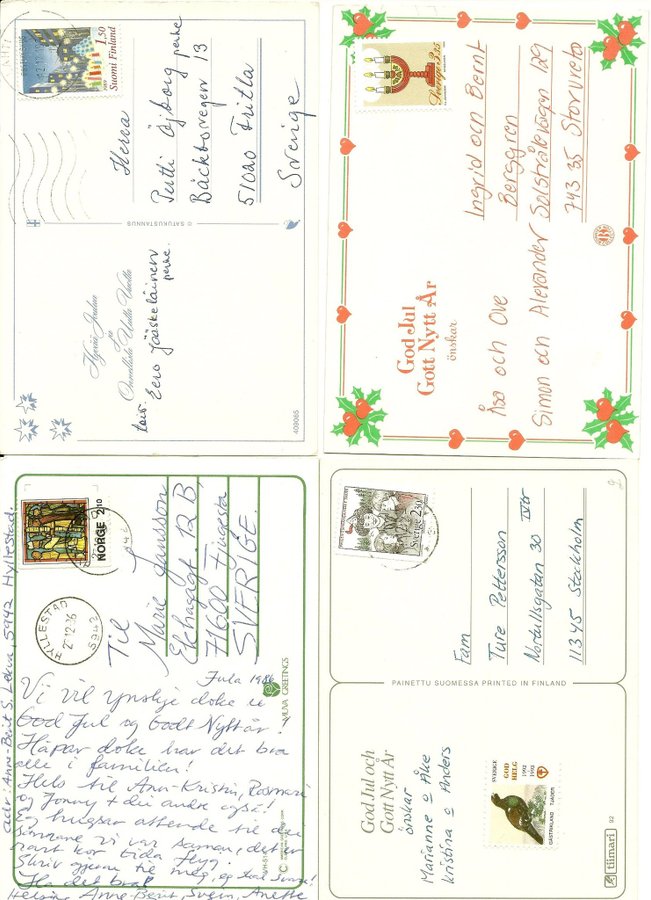 1.50
Suomi Finland
1989
Herra
Pertti Öjborg perhe
Bäckbovägen 13
51020 Fritla
Sverige
© SATUKUSTANNUS
Hyvää Joulua
ja
Onnellista Uutta Vuotta
toiv. Eero Jääskeläinen
perhe.
409085
Sverige 3.25
Ingrid och Bernt
Berggren
Solstrålevägen 129
743 35 Storvreta
God Jul
Gott Nytt År
önskar
Åsa och Ove
Simon och Alexander
NORGE 2.10
HYLLESTAD
2.12.86
5942
Til
Marie Jansson
Ekhagagt. 12 B
71600 Fjugesta
SVERIGE.
MUVA GREETINGS
Jula 1986
Vi vil ynskje doke ei
God Jul og Godt Nyttår!
Håpar doke har det bra
alle i familien!
Hels til Ann-Kristin, Rosmari
og Jonny + dei andre også!
Eg hugsar attende til den
sommaren vi var saman, det er
rart kor tida flyg.
Skriv gjerne til meg, eg skal svara!
Ha det bra!
Helsing Anne-Berit, Svein, Anette
adr: Anne-Berit S. 5942 Hyllestad.
Sverige 2.30
Fam
Ture Pettersson
Nortullsgatan 30 IV tr
11345 Stockholm
PAINETTU SUOMESSA PRINTED IN FINLAND
God Jul och
Gott Nytt År
önskar
Marianne o Åke
Kristina o Anders
SVERIGE
GOD
HELG
1992
1993
GÄSTRIKLAND TJÄDER
92
tiimari